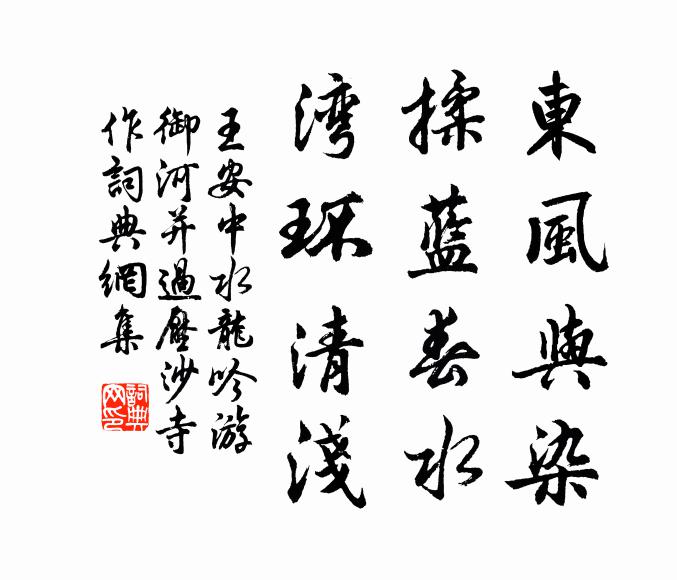 東風與染
揉藍春水
湾环清淺
王安中水龍吟游
御河并過壓沙寺
作詞典網集
詞典
网印